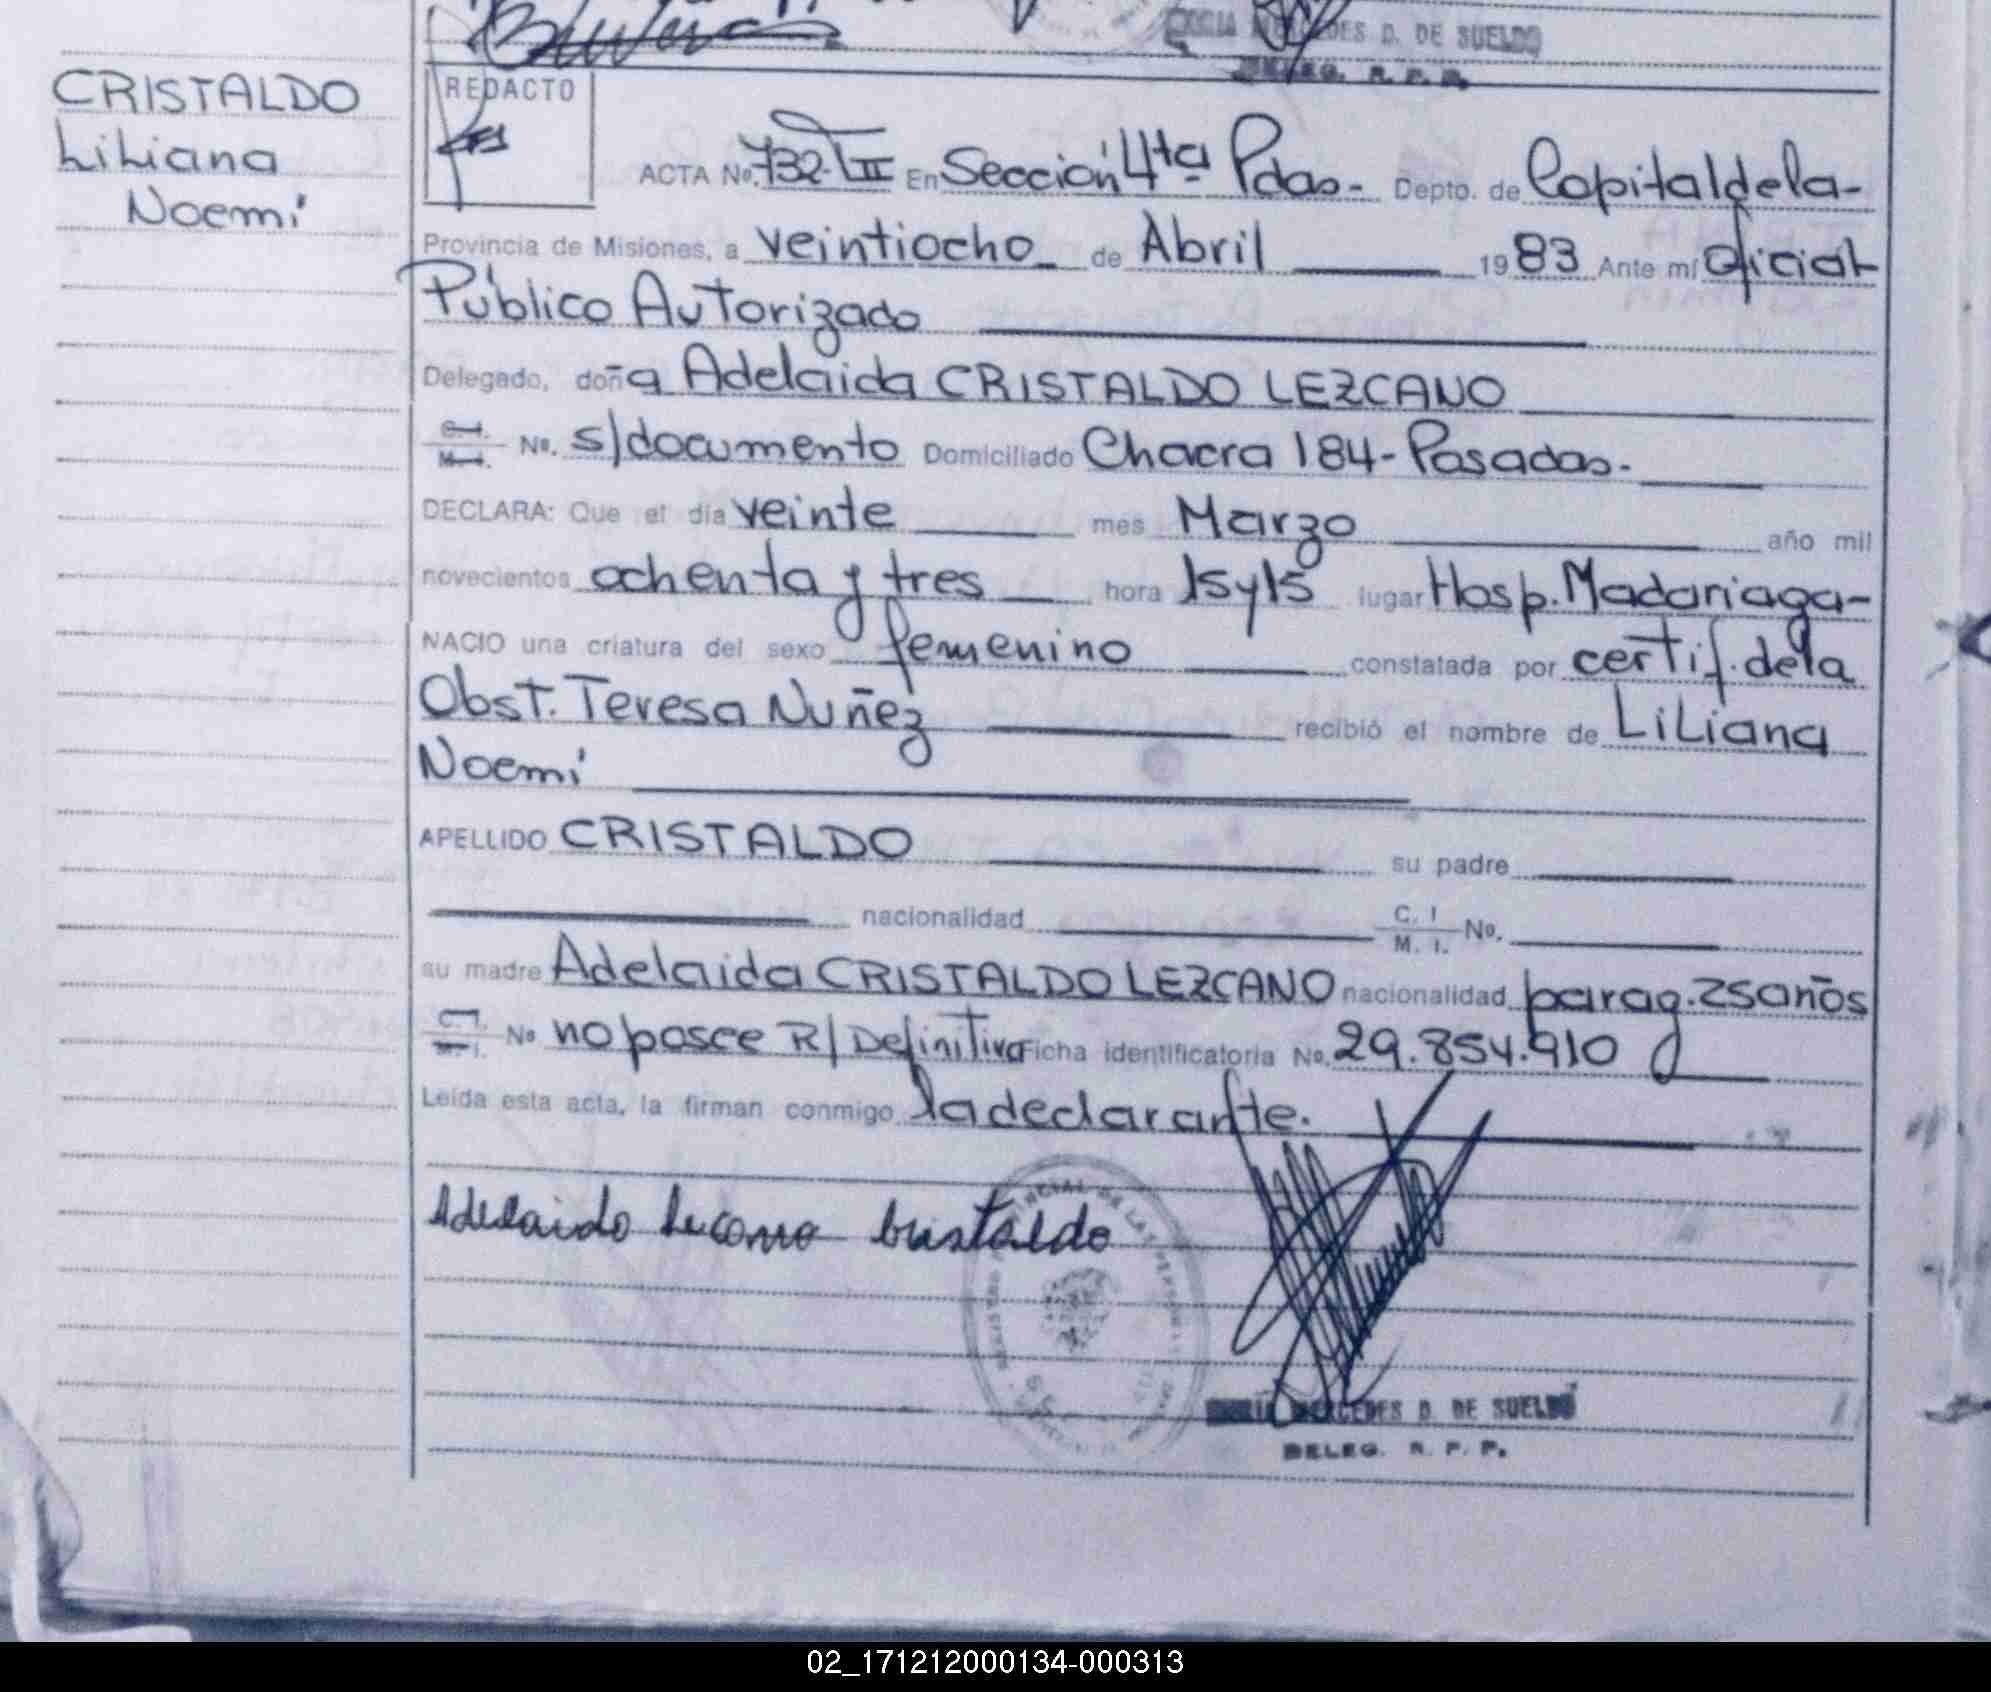 MERCEDES D. DE SUELDO
DELEG. R. P. P.
CRISTALDO
Liliana
Noemí
REDACTO
ACTA No. 732-TII En Sección 4ta Pdas- Depto. de Capital de la-
Provincia de Misiones, a veintiocho de Abril 1983 Ante mí Oficial
Público Autorizado
Delegado, doña Adelaida CRISTALDO LEZCANO
C.I. M.I. No. s/documento Domiciliado Chacra 184-Posadas-
DECLARA: Que el día veinte mes Marzo año mil
novecientos ochenta y tres hora 15y15 lugar Hosp. Madariaga-
NACIO una criatura del sexo femenino constatada por certif. de la
Obst. Teresa Nuñez recibió el nombre de Liliana
Noemí
APELLIDO CRISTALDO su padre
nacionalidad C. I M. I. No.
su madre Adelaida CRISTALDO LEZCANO nacionalidad parag. 25 años
C.I. M.I. No no posee R/Definitiva Ficha identificatoria No. 29.854.910
Leída esta acta, la firman conmigo la declarante.
Adelaida Lezcano Cristaldo
MERCEDES D. DE SUELDO
DELEG. R. P. P.
02_171212000134-000313